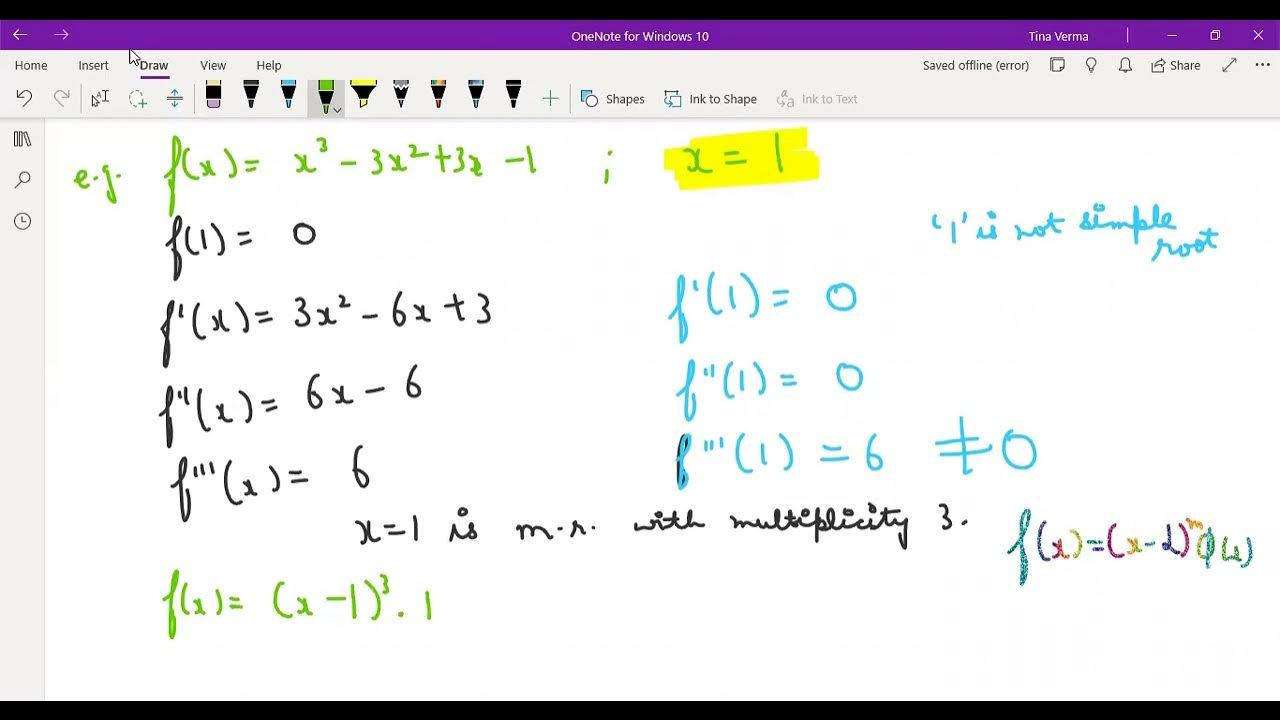 OneNote for Windows 10
Tina Verma
Home Insert Draw View Help
Saved offline (error) Share
Shapes Ink to Shape Ink to Text
e.g. f(x) = x³ - 3x² + 3x - 1 ; x = 1
f(1) = 0
'1' is not simple
root
f'(x) = 3x² - 6x + 3 f'(1) = 0
f''(x) = 6x - 6 f''(1) = 0
f'''(x) = 6 f'''(1) = 6 ≠ 0
x=1 is m.r. with multiplicity 3.
f(x)=(x-α)ᵐφ(x)
f(x) = (x - 1)³ . 1